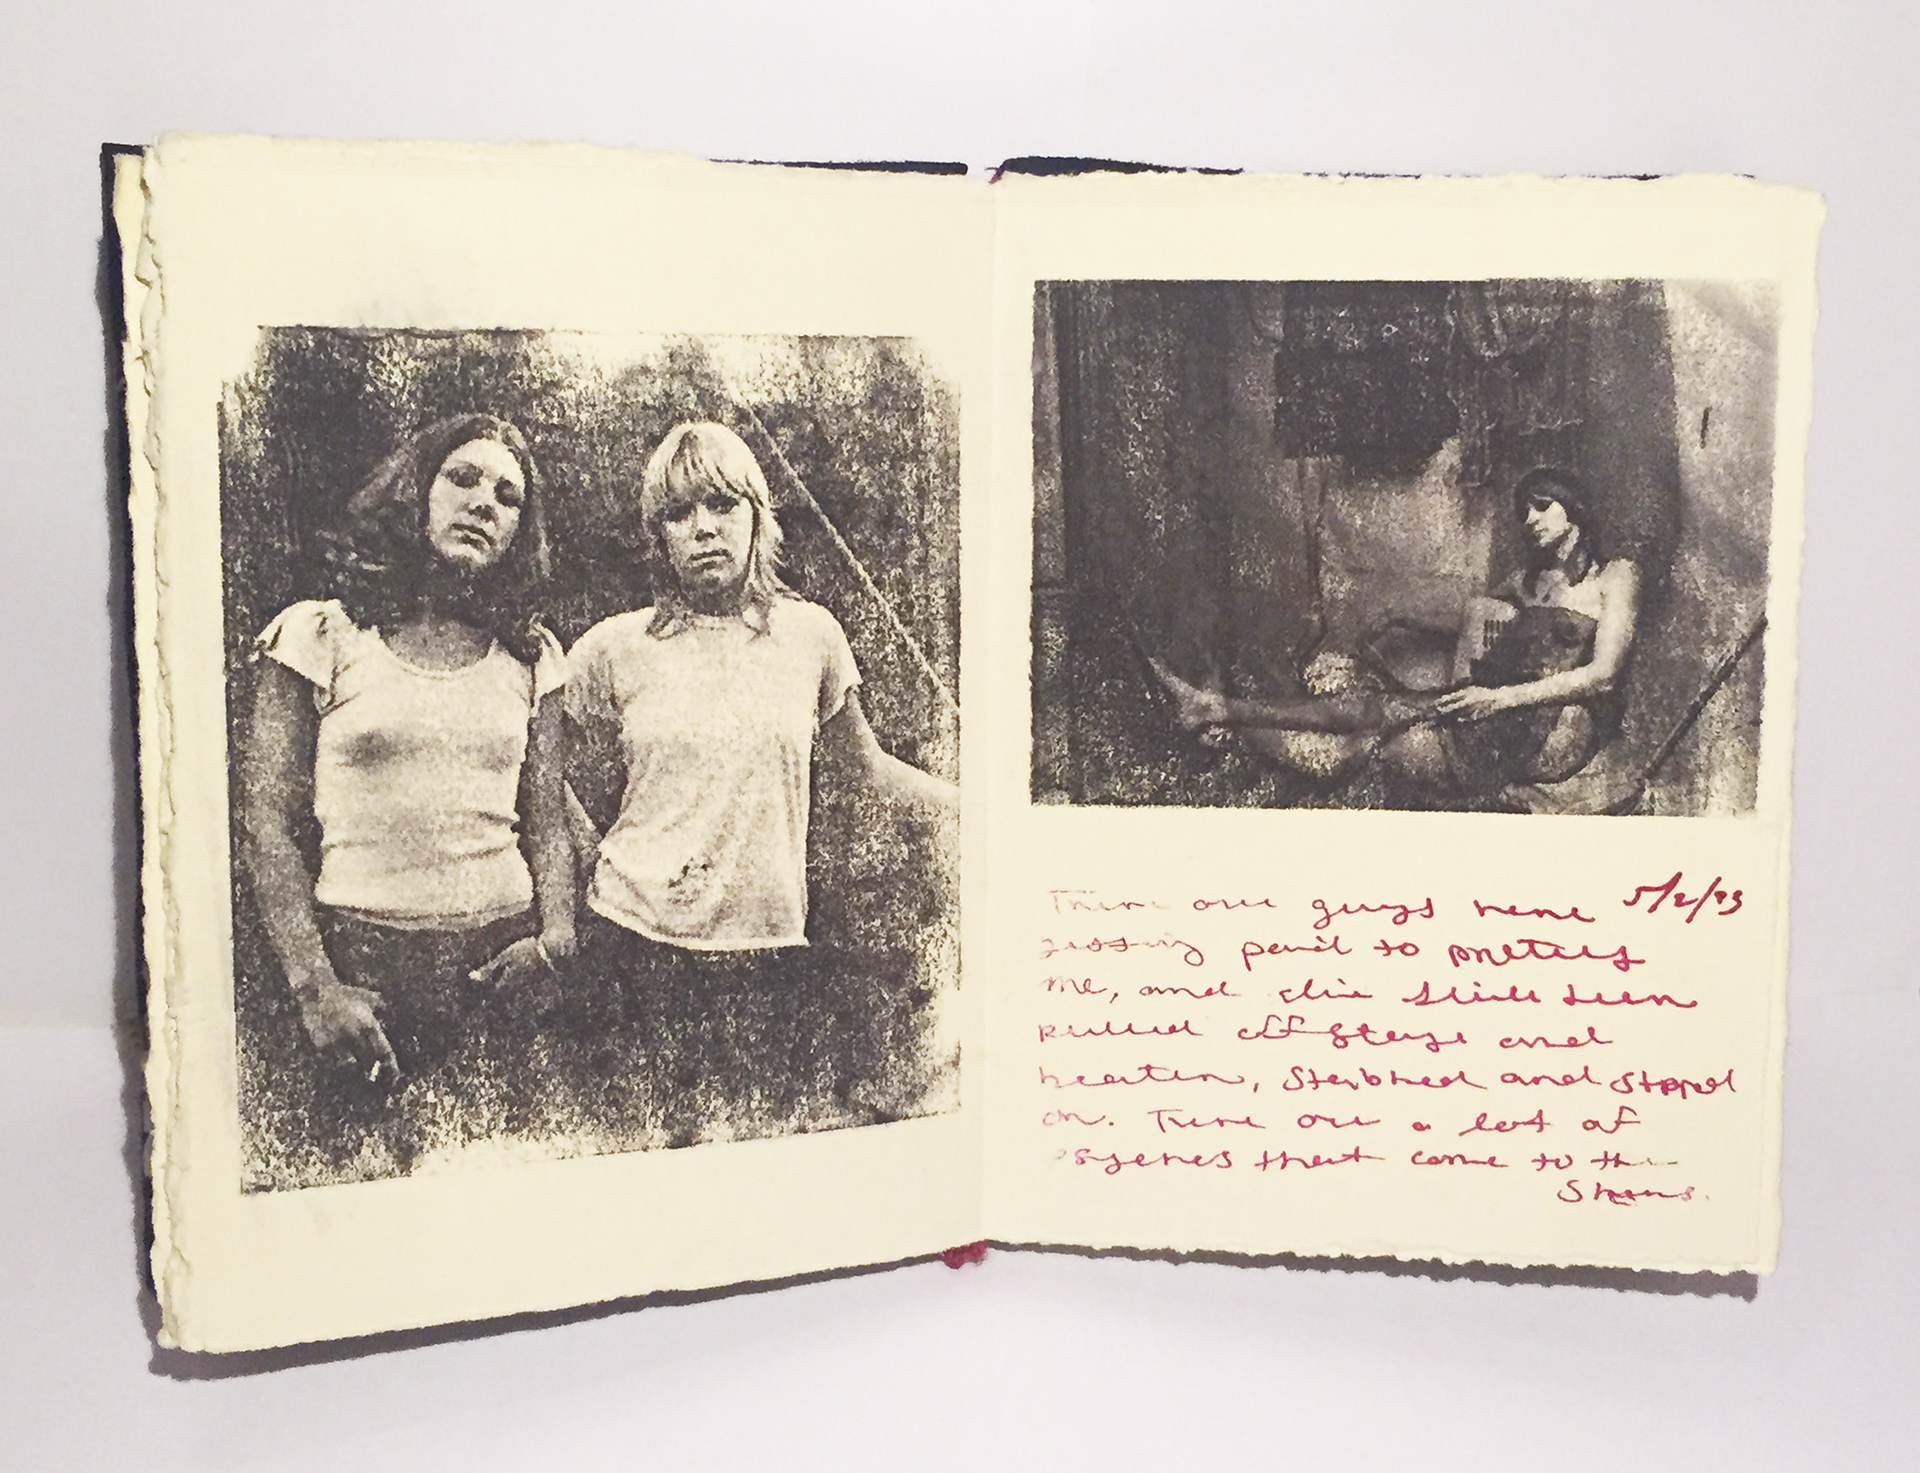 There are guys here 5/2/93
getting paid to protect
me, and I've still been
pulled offstage and
beaten, stabbed and stepped
on. There are a lot of
psychos that come to the
shows.